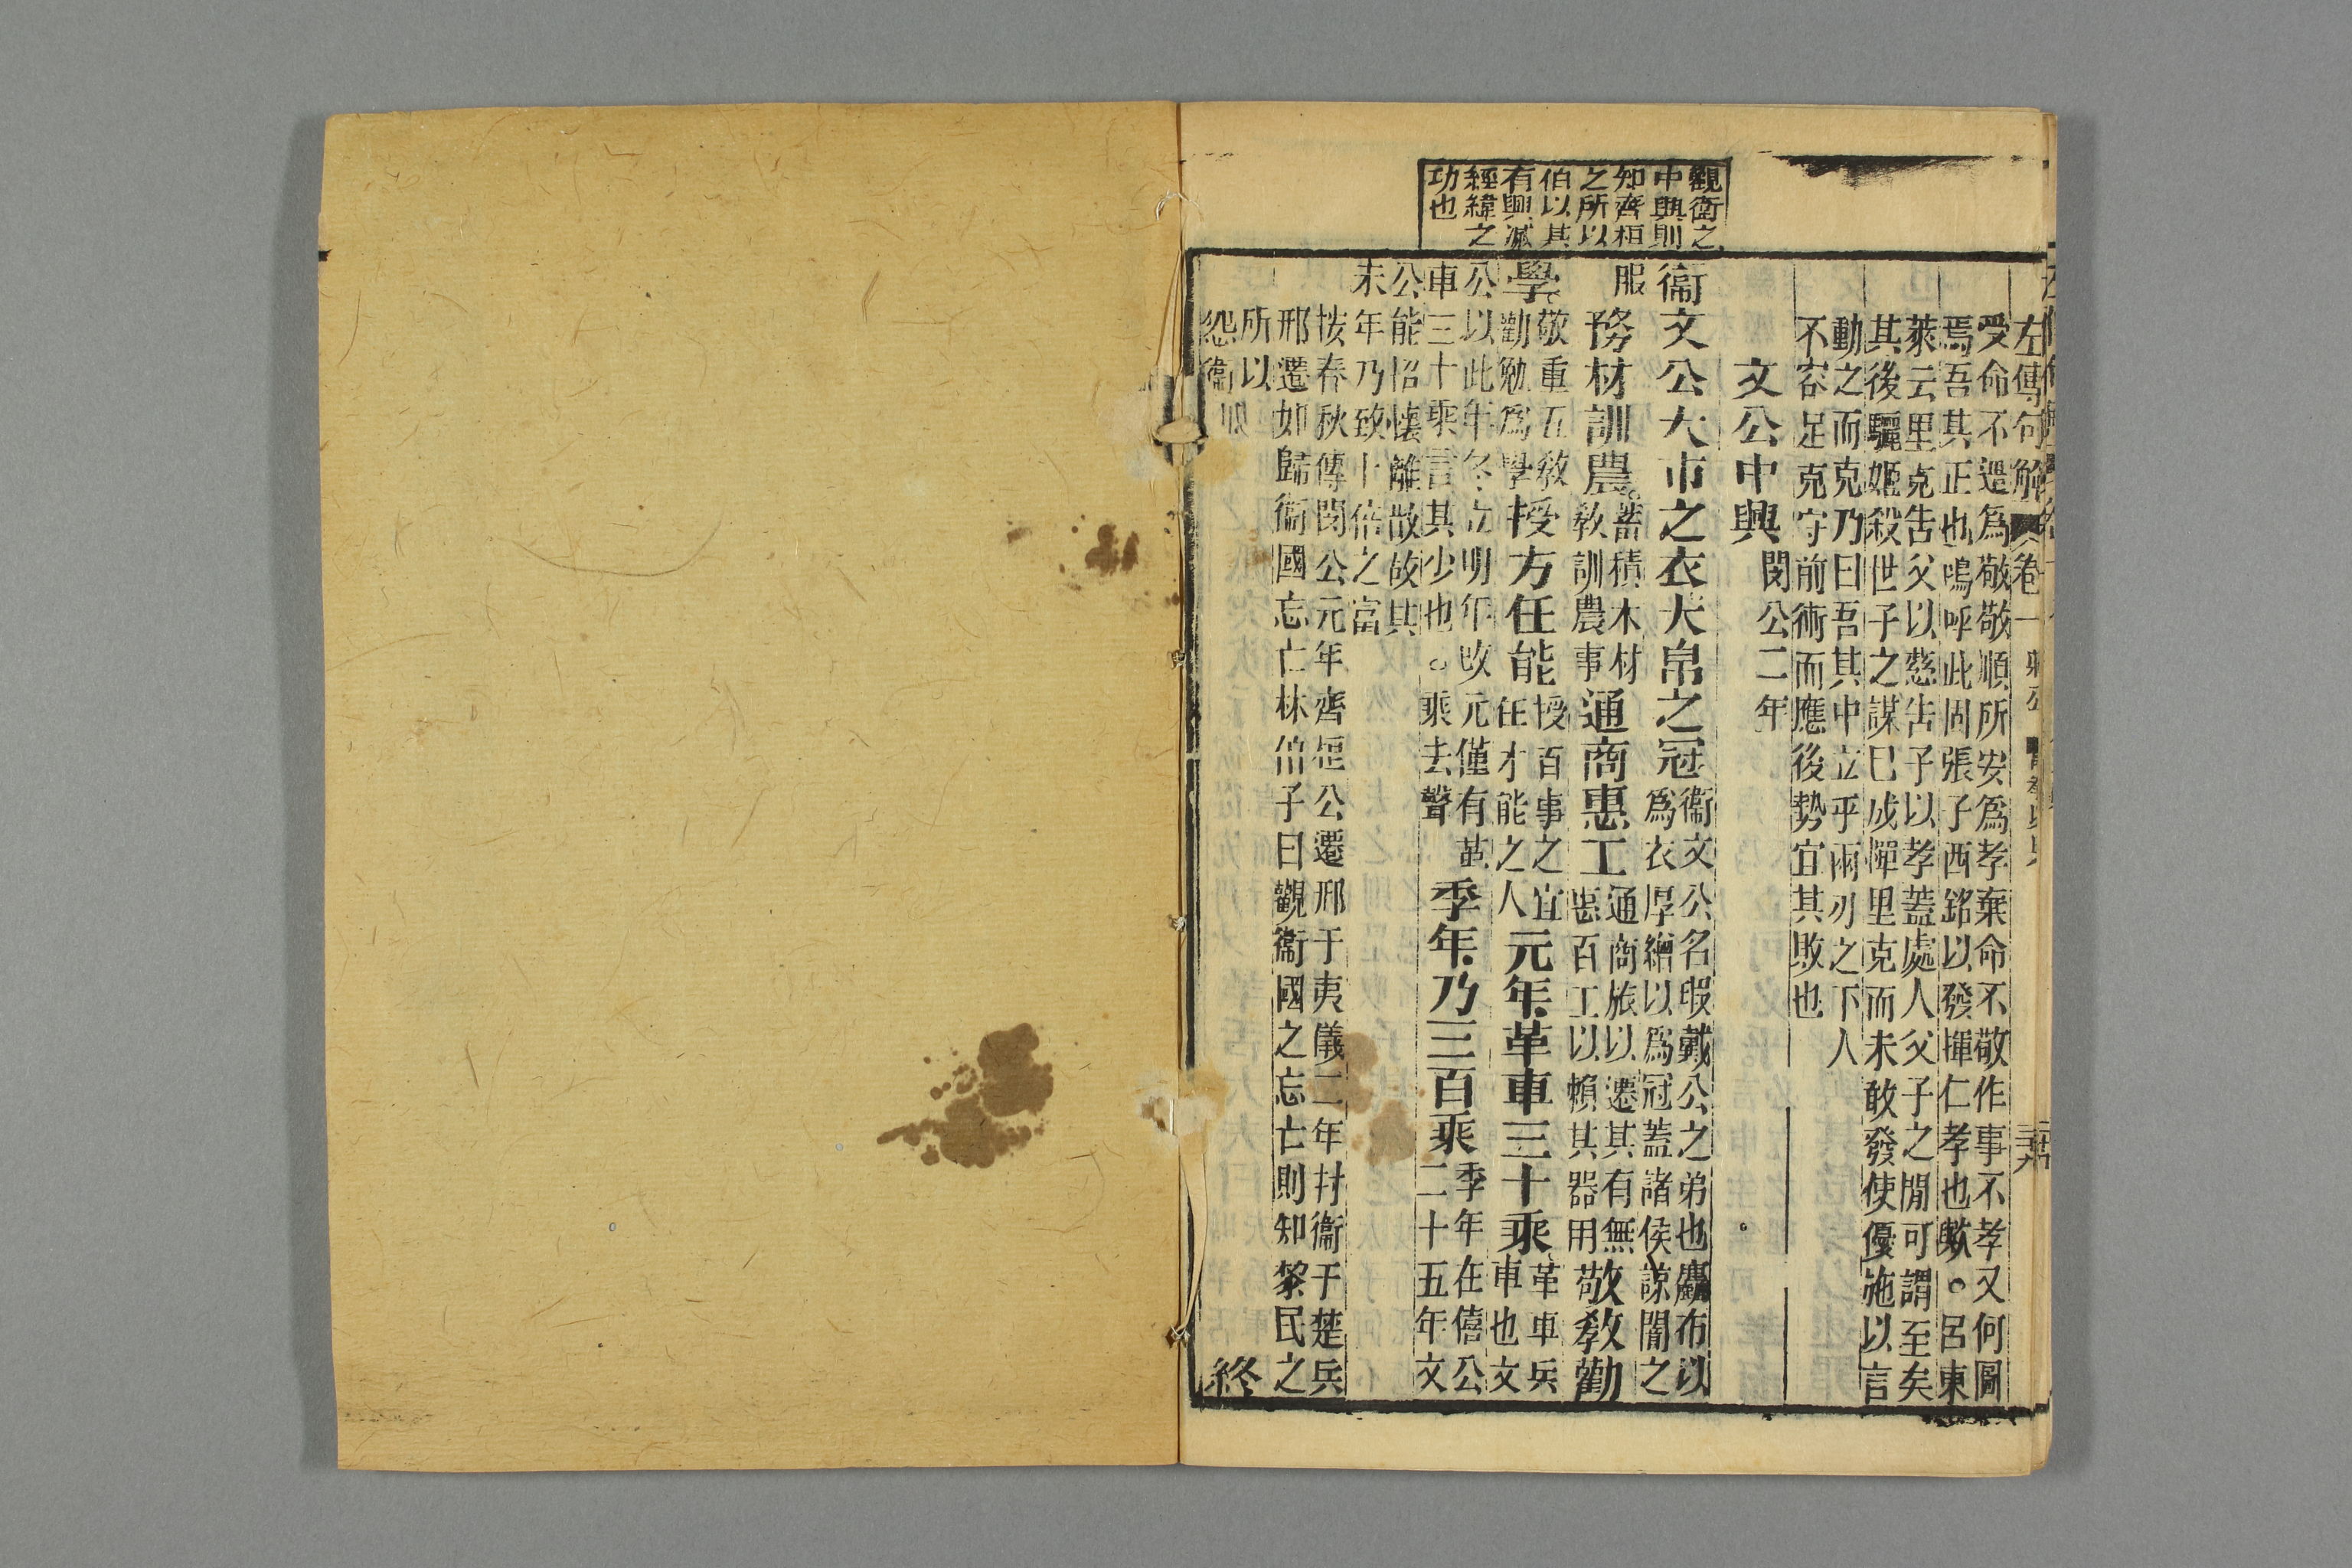 左傳句解 卷一
受命不遑爲敬敬順所安爲孝棄命不敬作事不孝又何圖
焉吾其正也嗚呼此固張子西銘以發揮仁孝也歟○呂東
萊云里克告父以慈告子以孝蓋處人父子之閒可謂至矣
其後驪姬殺世子之謀已成憚里克而未敢發使優施以言
動之而克乃曰吾其中立乎兩刃之下人
不容足克守前術而應後勢宜其敗也
文公中興 閔公二年
觀衛之
中興則
知齊桓
之所以
伯以其
有興滅
經緯之
功也
衞文公大布之衣大帛之冠 衞文公名㬋戴公之弟也麤布以
爲衣厚繒以爲冠蓋諸侯諒闇之
服 務材訓農 蓄積木材
敎訓農事 通商惠工 通商旅以遷其有無
惠百工以賴其器用 敬敎勸
學 敬重五敎
勸勉爲學 授方任能 授百事之宜
任才能之人 元年革車三十乘 革車兵
車也文
公以此年冬立明年改元僅有革
車三十乘言其少也○乘去聲 季年乃三百乘 季年在僖公
二十五年文
公能招懷離散故其
未年乃致十倍之富
按春秋傳閔公元年齊桓公遷邢于夷儀二年封衞于楚兵
邢遷如歸衞國忘亡林伯子曰觀衞國之忘亡則知黎民之
所以
怨衞
終